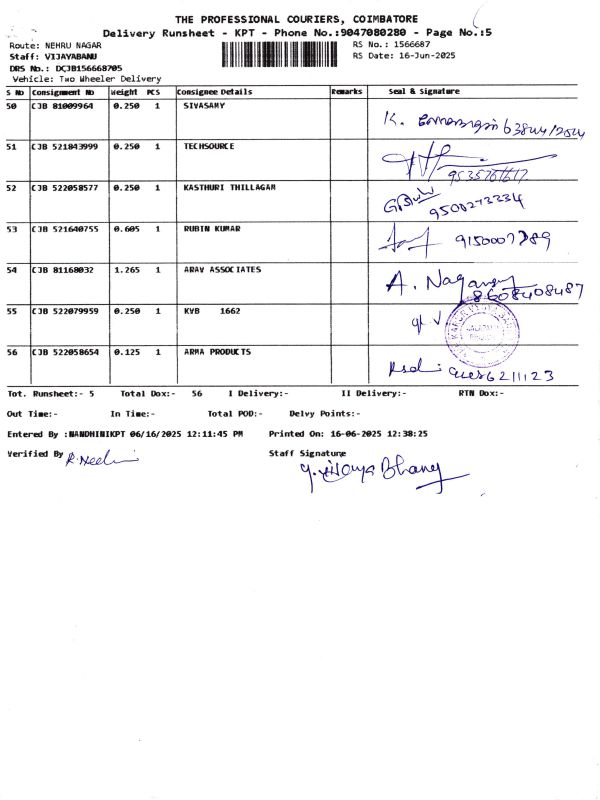 THE PROFESSIONAL COURIERS, COIMBATORE
Delivery Runsheet - KPT - Phone No.:9047080280 - Page No.:5
Route: NEHRU NAGAR RS No.: 1566687
Staff: VIJAYABANU RS Date: 16-Jun-2025
DRS No.: DCJB156668705
Vehicle: Two Wheeler Delivery
S No Consignment No Weight PCS Consignee Details Remarks Seal & Signature
50 CJB 81009964 0.250 1 SIVASAMY
K.
51 CJB 521843999 0.250 1 TECHSOURCE
52 CJB 522058577 0.250 1 KASTHURI THILLAGAR
9500273334
53 CJB 521640755 0.605 1 RUBIN KUMAR
9150007789
54 CJB 81168032 1.265 1 ARAV ASSOCIATES
A. 
8608408487
55 CJB 522079959 0.250 1 KVB 1662
56 CJB 522058654 0.125 1 ARMA PRODUCTS
Tot. Runsheet:- 5 Total Dox:- 56 I Delivery:- II Delivery:- RTN Dox:-
Out Time:- In Time:- Total POD:- Delvy Points:-
Entered By :NANDHINIKPT 06/16/2025 12:11:45 PM Printed On: 16-06-2025 12:38:25
Verified By Staff Signature